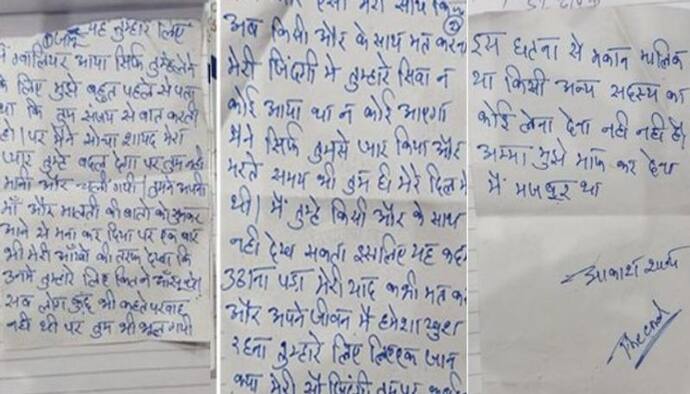 यह तुम्हारे लिए
मैं ग्वालियर आया सिर्फ तुम्हारे
के लिए मुझे बहुत पहले से पता
था कि तुम संजय से बात करती
हो। पर मैंने सोचा शायद मेरा
प्यार तुम्हे बदल देगा पर तुम नही
मानी और चली गयी। तुमने अपनी
माँ और मालती की बातो को सुनकर
आने से मना कर दिया पर एक बार
भी मेरी आँखो की तरफ देखा कि
उनमे तुम्हारे लिए कितने आँसू
सब लोग कुछ भी कहते परवाह
नही थी पर तुम भी भूल गयी
मेरे साथ किया
अब किसी और के साथ मत करना
मेरी जिंदगी मे तुम्हारे सिवा न
कोई आया था न कोई आएगा
मैंने सिर्फ तुमसे प्यार किया और
मरते समय भी तुम ही मेरे दिल मे
थी। मैं तुम्हे किसी और के साथ
नही देख सकता इसलिए यह कदम
उठाना पडा मेरी याद कभी मत
और अपने जीवन मे हमेशा खुश
रहना तुम्हारे लिए एक जान
क्या मेरी सौ जिंदगी तुमपर
इस घटना से मकान मालिक
या किसी अन्य सदस्य का
कोई लेना देना नही नही है।
अम्मा मुझे माफ कर देना
मैं मजबूर था
आकाश शर्मा
The end